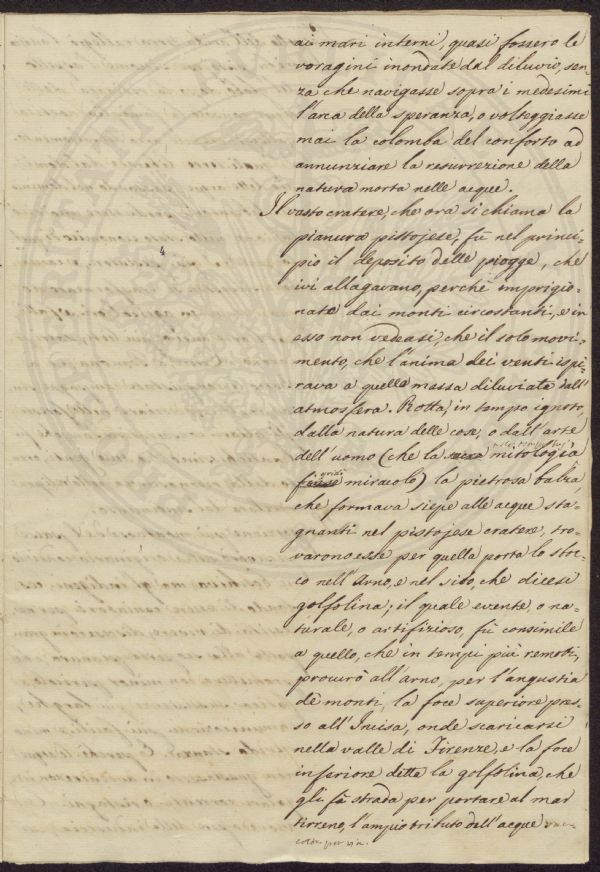 ai mari interni, quasi fossero le
voragini inondate dal diluvio, sen=
za che navigasse sopra i medesimi
l'arca della speranza, o volteggiasse
mai la colomba del conforto ad
annunziare la resurrezione della
natura morta nelle acque.
Il vasto cratere, che ora si chiama la
pianura pistojese, fù nel princi=
pio il deposito delle piogge, che
ivi allagavano, perchè imprigio=
nate dai monti circostanti, e in
esso non vedeasi, che il solo movi=
mento, che l'anima dei venti ispi=
rava a quella massa diluviata dall'
atmosfera. Rotta, in tempo ignoto,
dalla natura delle cose, o dall'arte
dell'uomo (che la sacra mitologia
gridò miracolo) la pietrosa balza,
che formava siepe alle acque sta=
gnanti nel pistojese cratere, tro=
varono esse per quella porta lo stra=
co nell'Arno, e nel sito, che dicesi
golfolina; il quale evente, o na=
turale, o artifizioso, fù consimile
a quello, che in tempi più remoti,
procurò all'arno, per l'angustia
dè monti, la foce superiore pres=
so all'Incisa, onde scaricarsi
nella valle di Firenze, e la foce
inferiore detta la golfolina, che
gli fà strada per portare al mar
tirreno, l'ampio tributo dell'acque
per via.